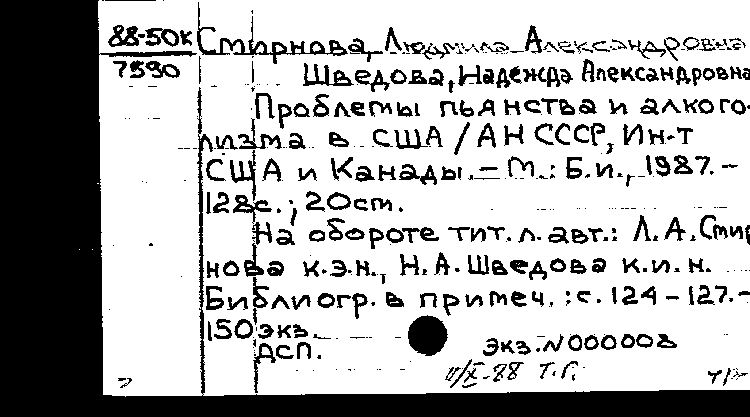 88-50К Смирнова, Людмила Александровна
7590 Шведова, Надежда Александровна
Проблемы пьянства и алкого-
лизма в США / АН СССР, Ин-т
США и Канады. – М.: Б.и., 1987. –
128с.; 20 cm.
На обороте тит. л. авт.: Л. А. Смир
нова к.э.н., Н. А. Шведова к.и.н.
Библиогр. в примеч.: с. 124 – 127. –
150 экз.
ДСП. Экз. N 000008
11/X-88 Т.Г.